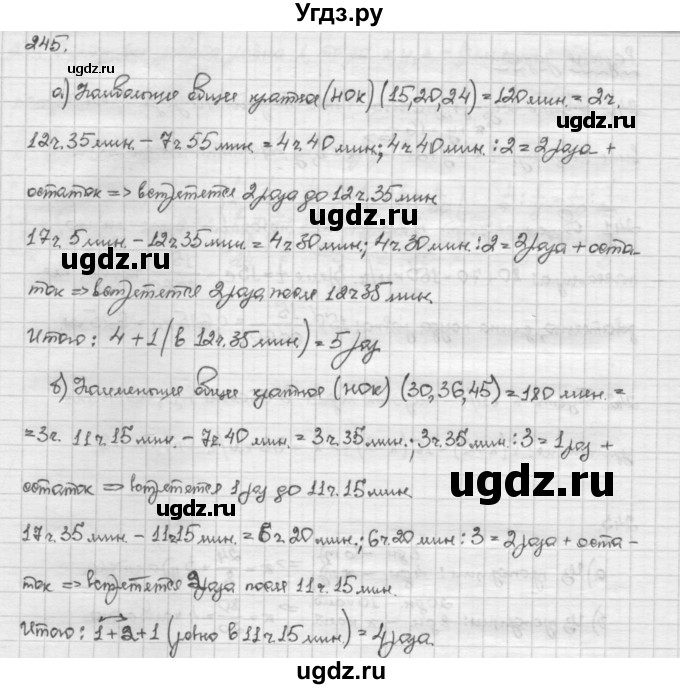 Угдз.ру
245.
а) Наибольшее общее кратное (НОК) (15,20,24) = 120 мин. = 2ч.
12ч.35мин. - 7ч 55мин. = 4ч.40мин.; 4ч 40мин. : 2 = 2 раза +
остаток => встретятся 2 раза до 12ч.35мин.
17ч.5мин. - 12ч 35мин. = 4ч.30мин.; 4ч.30мин. : 2 = 2 раза + оста-
ток => встретятся 2 раза после 12ч 35мин.
Итого: 4 + 1 (в 12ч.35мин) = 5 раз
б) Наименьшее общее кратное (НОК) (30,36,45) = 180 мин. =
= 3ч. 11ч.15мин. - 7ч.40мин. = 3ч.35мин.; 3ч.35мин. : 3 = 1 раз +
остаток => встретятся 1 раз до 11ч.15мин.
17ч.35мин. - 11ч15мин. = 6ч20мин.; 6ч.20мин : 3 = 2 раза + оста-
ток => встретятся 2 раза после 11ч.15мин.
Итого: 1+2+1 (ровно в 11ч.15мин) = 4 раза.
ugdz.ru
ugdz.ru
ugdz.ru
ugdz.ru
ugdz.ru
ugdz.ru
ugdz.ru
ugdz.ru
ugdz.ru